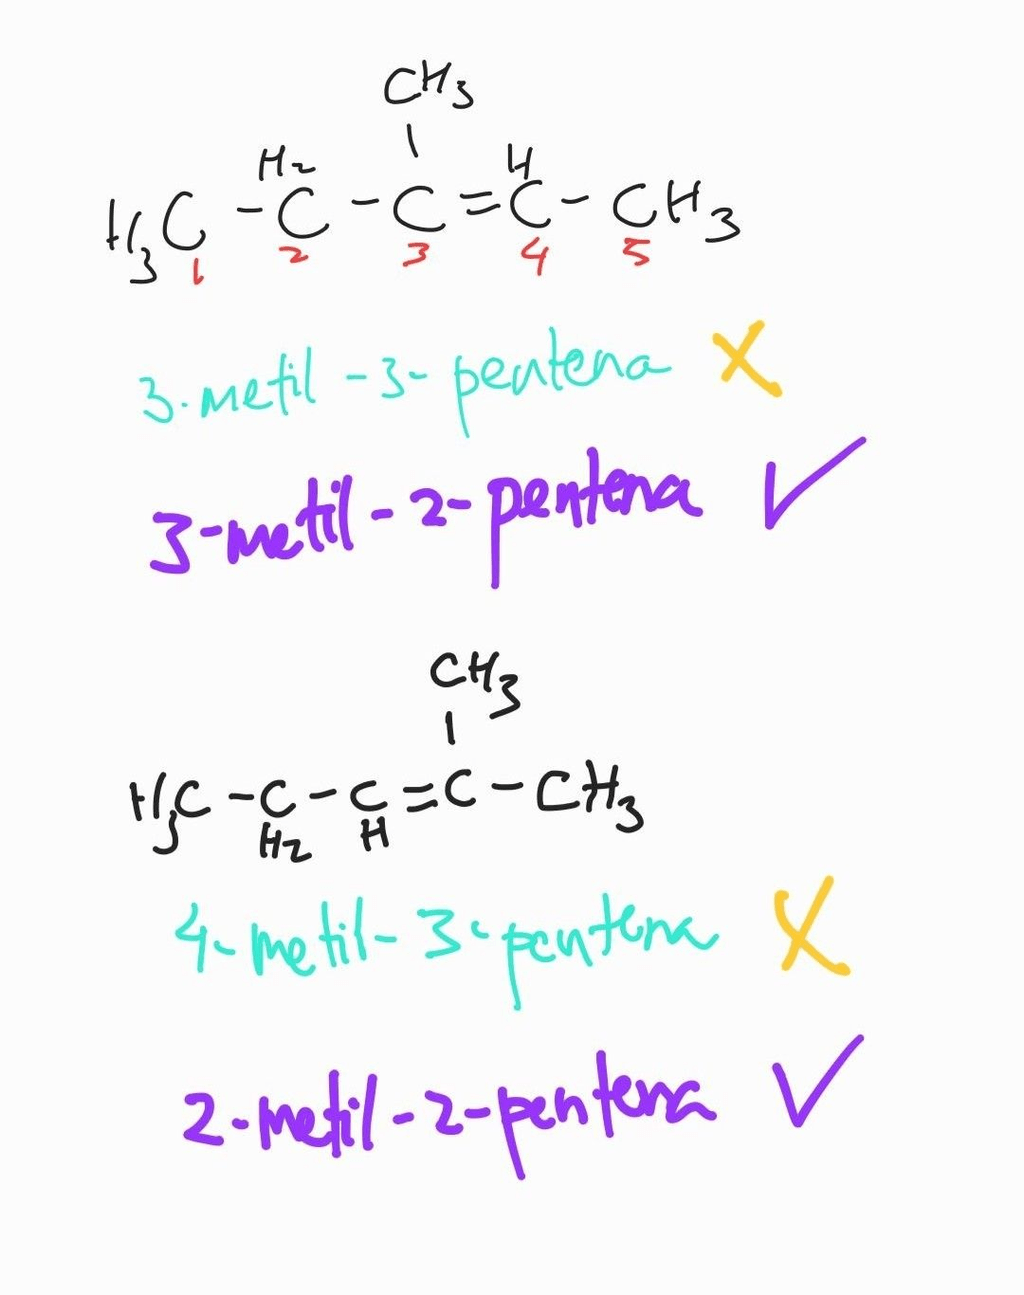 CH3
H2 H
H3C - C - C = C - CH3
1 2 3 4 5
3-metil-3-pentena X
3-metil-2-pentena ✓
CH3
H3C - C - C = C - CH3
H2 H
4-metil-3-pentena X
2-metil-2-pentena ✓